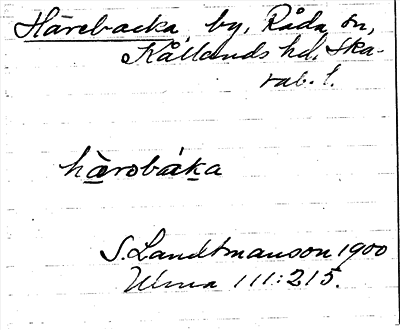 Härebacka, by, Råda sn,
Kållands hd. Ska-
rab. l.
hàrobáka
S. Landtmanson 1900
Ulma 111:215.